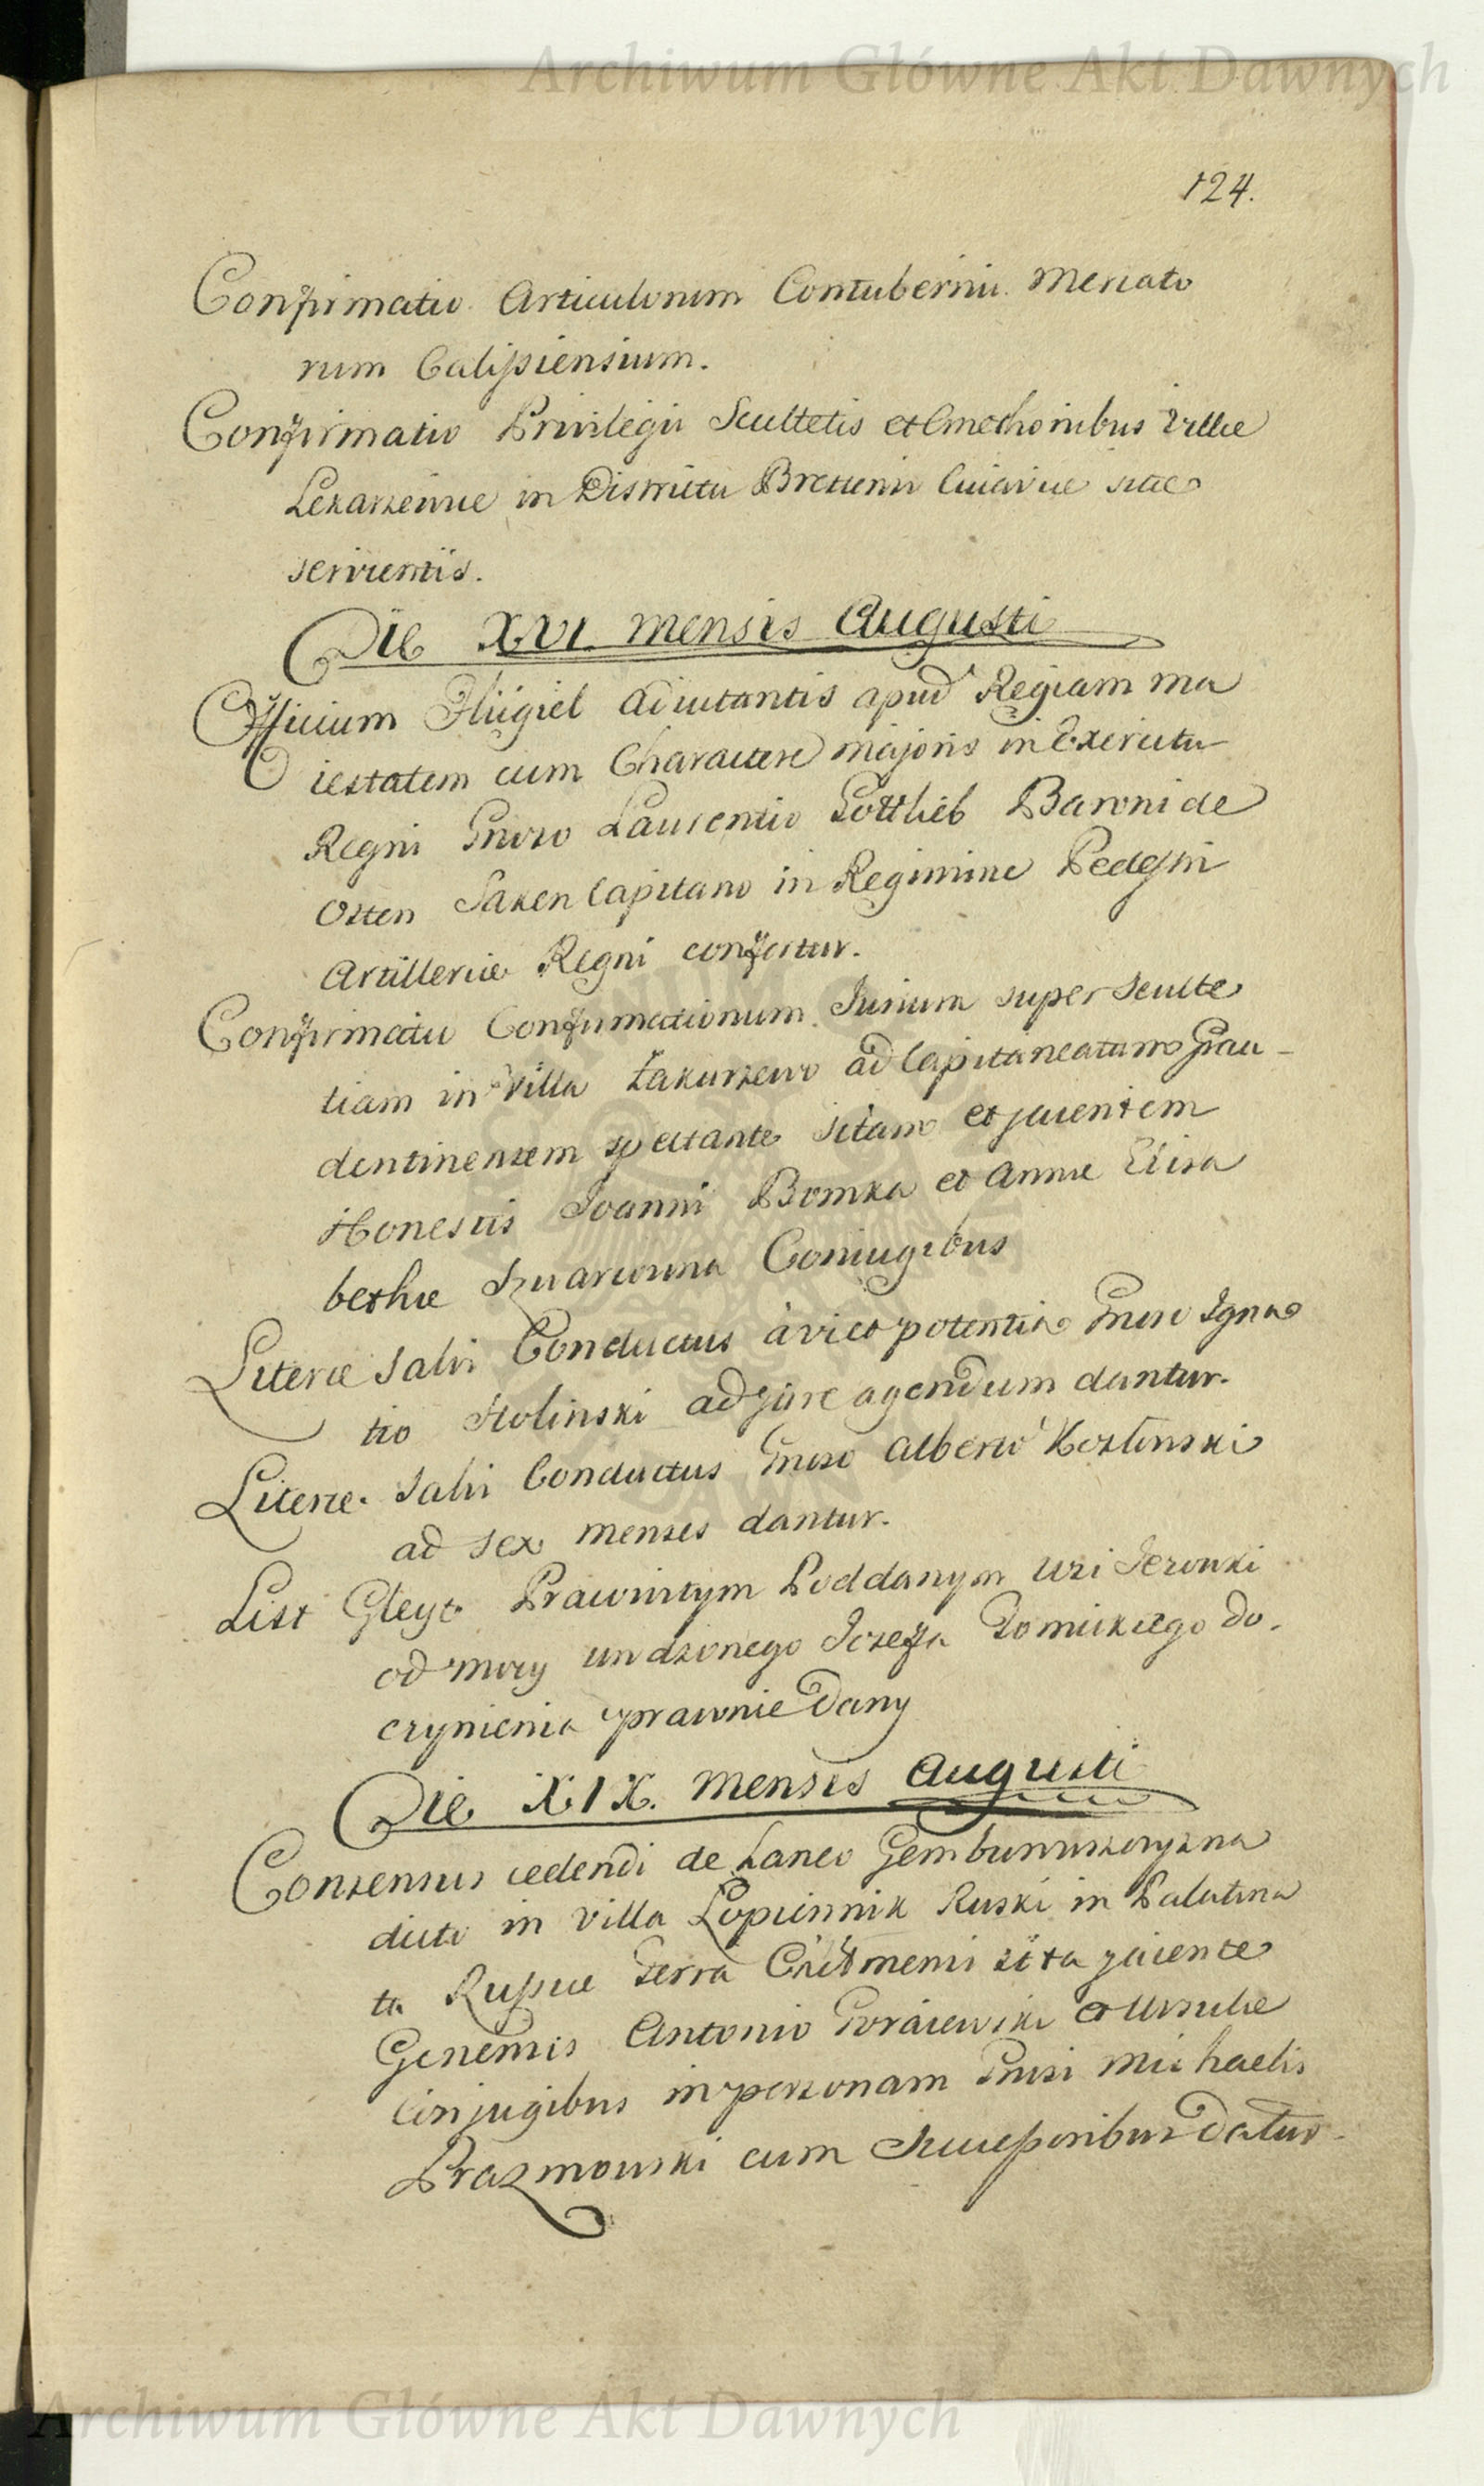 Archiwum Główne Akt Dawnych
124.
Confirmatio Articulorum Contubernii Mercato
rum Calissiensium.
Confirmatio Privilegii Scultetis et Cmethonibus Villæ
Lekarzewie in Districtu Brestensi Cuiaviæ sitæ
servientis.
Die XVI mensis Augusti
Officium Fligiel Adiutantis apud Regiam ma
iestatem cum Charactere majoris in Exercitu
Regni Gnoso Laurentio Gottlieb Baroni de
Osten Saken Capitano in Regimine Pedestri
Artilleriæ Regni confertur.
Confirmatio Confirmationum Jurium super Sculte
tiam in Villa Zakurzewo ad Capitaneatum Grau-
dentinensem spectante sitam et jacentem
Honestis Joanni Bomka et Annæ Elisa
bethæ Coniugibus
Literæ Salvi Conductus à vi et potentia Gnoso Igna
tio Stolinski ad jure agendum dantur.
Literæ Salvi Conductus Gnoso Alberto Kozlinski
ad sex menses dantur.
List Gleyt Prawnitym Poddanym Wsi
od mocy urodzonego Jozefa Tomickiego do
czynienia prawnie Dany
Die XIX. mensis Augusti
Consensus cedendi de Laneo
dicto in villa Łopiennik Ruski in Palatina
tu Russiæ Terra Chelmensi sita jacente
Generosis Antonio Goraiewski et Ursulæ
Conjugibus in personam Gnosi Michaelis
Prazmowski cum Successoribus Datur.
Archiwum Główne Akt Dawnych